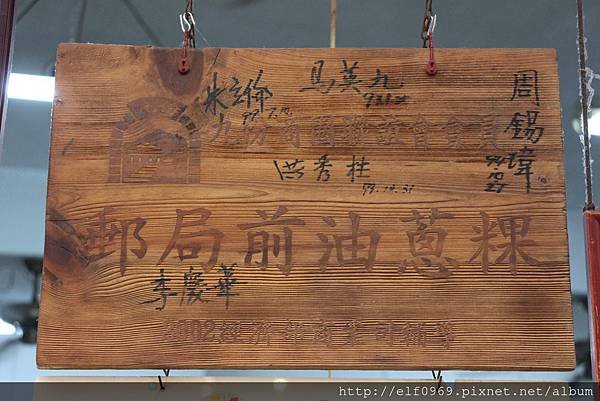 朱立倫
99.7.12
馬英九
周錫瑋
九份商圈聯誼會會員
洪秀柱
99.10.31
郵局前油蔥粿
李慶華
2002經濟部商業司輔導
http://elf0969.pixnet.net/album